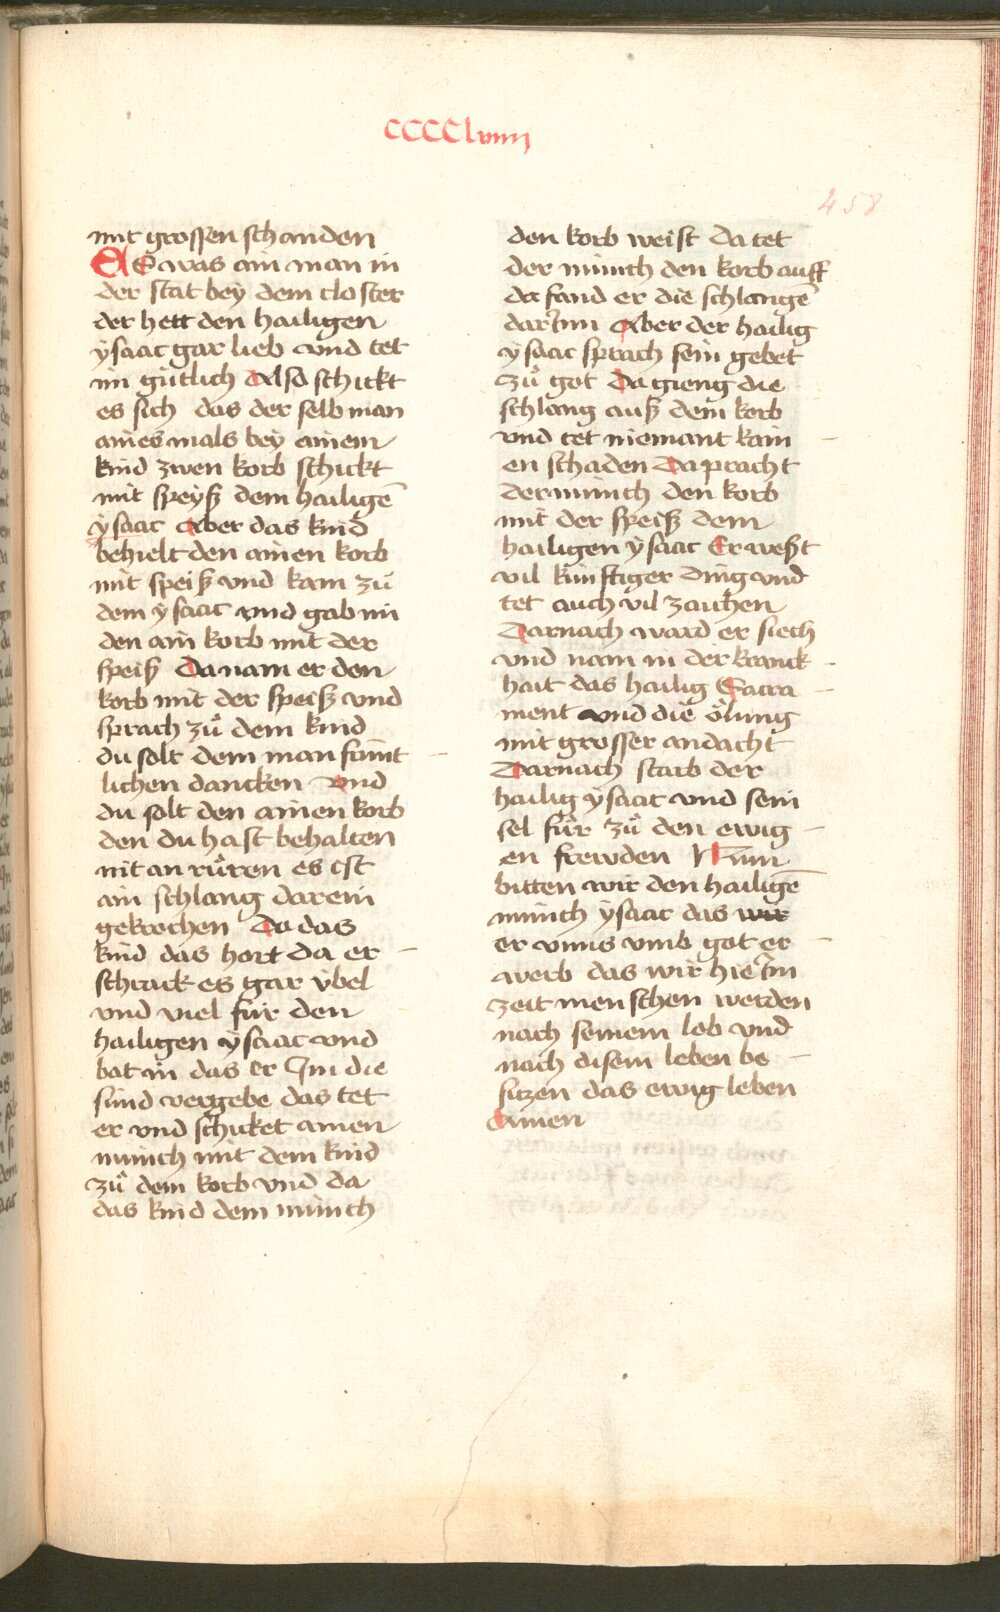 CCCClviiij
458
mit grossen schanden
Es was ain man in
der stat bey dem closter
der hett den hailigen
ÿsaac gar lieb vnd tet
im gu̇tlich Also schickt
es sich das der selb man
aines mals bey ainem
kind zwen korb schickt
mit speyß dem hailigē
ÿsaac Aber das kind
behielt den ainen korb
mit speiß vnd kam zů
dem ÿsaac vnd gab im
den ain korb mit der
speiß Da nam er den
korb mit der speiß vnd
sprach zů dem kind
du solt dem man frúnt
lichen dancken Vnd
du solt den ainen korb
den du hast behalten
nit an růren es ist
ain schlang darein
gekrochen Do das
kind das hort da er
schrack es gar ÿbel
vnd viel für den
hailigen ÿsaac vnd
bat in das er Im die
sünd vergebe das tet
er vnd schicket ainen
münch mit dem kind
zů dem korb vnd da
das kind dem münch
den korb weist da tet
der münch den korb auff
da fand er die schlangē
dar Inn Aber der hailig
ÿsaac sprach sein gebet
zů got Da gieng die
schlang auß dem korb
vnd tet niemant kain
en schaden Da pracht
der münch den korb
mit der speiß dem
hailigen ÿsaac Er weßt
vil künfftiger ding vnd
tet auch vil zaichen
Darnach ward er siech
vnd nam in der kranck
hait das hailig Sacra
ment vnd die ölung
mit grosser andacht
Darnach starb der
hailig ÿsaac vnd sein
sel fůr zů den ewig
en frewden Nun
bitten wir den hailigē
münch ÿsaac das wir
er vnns vmb got er
werb das wir hie Im
zeit menschen werden
nach seinem lob vnd
nach disem leben be
sitzen das ewig leben
Amen